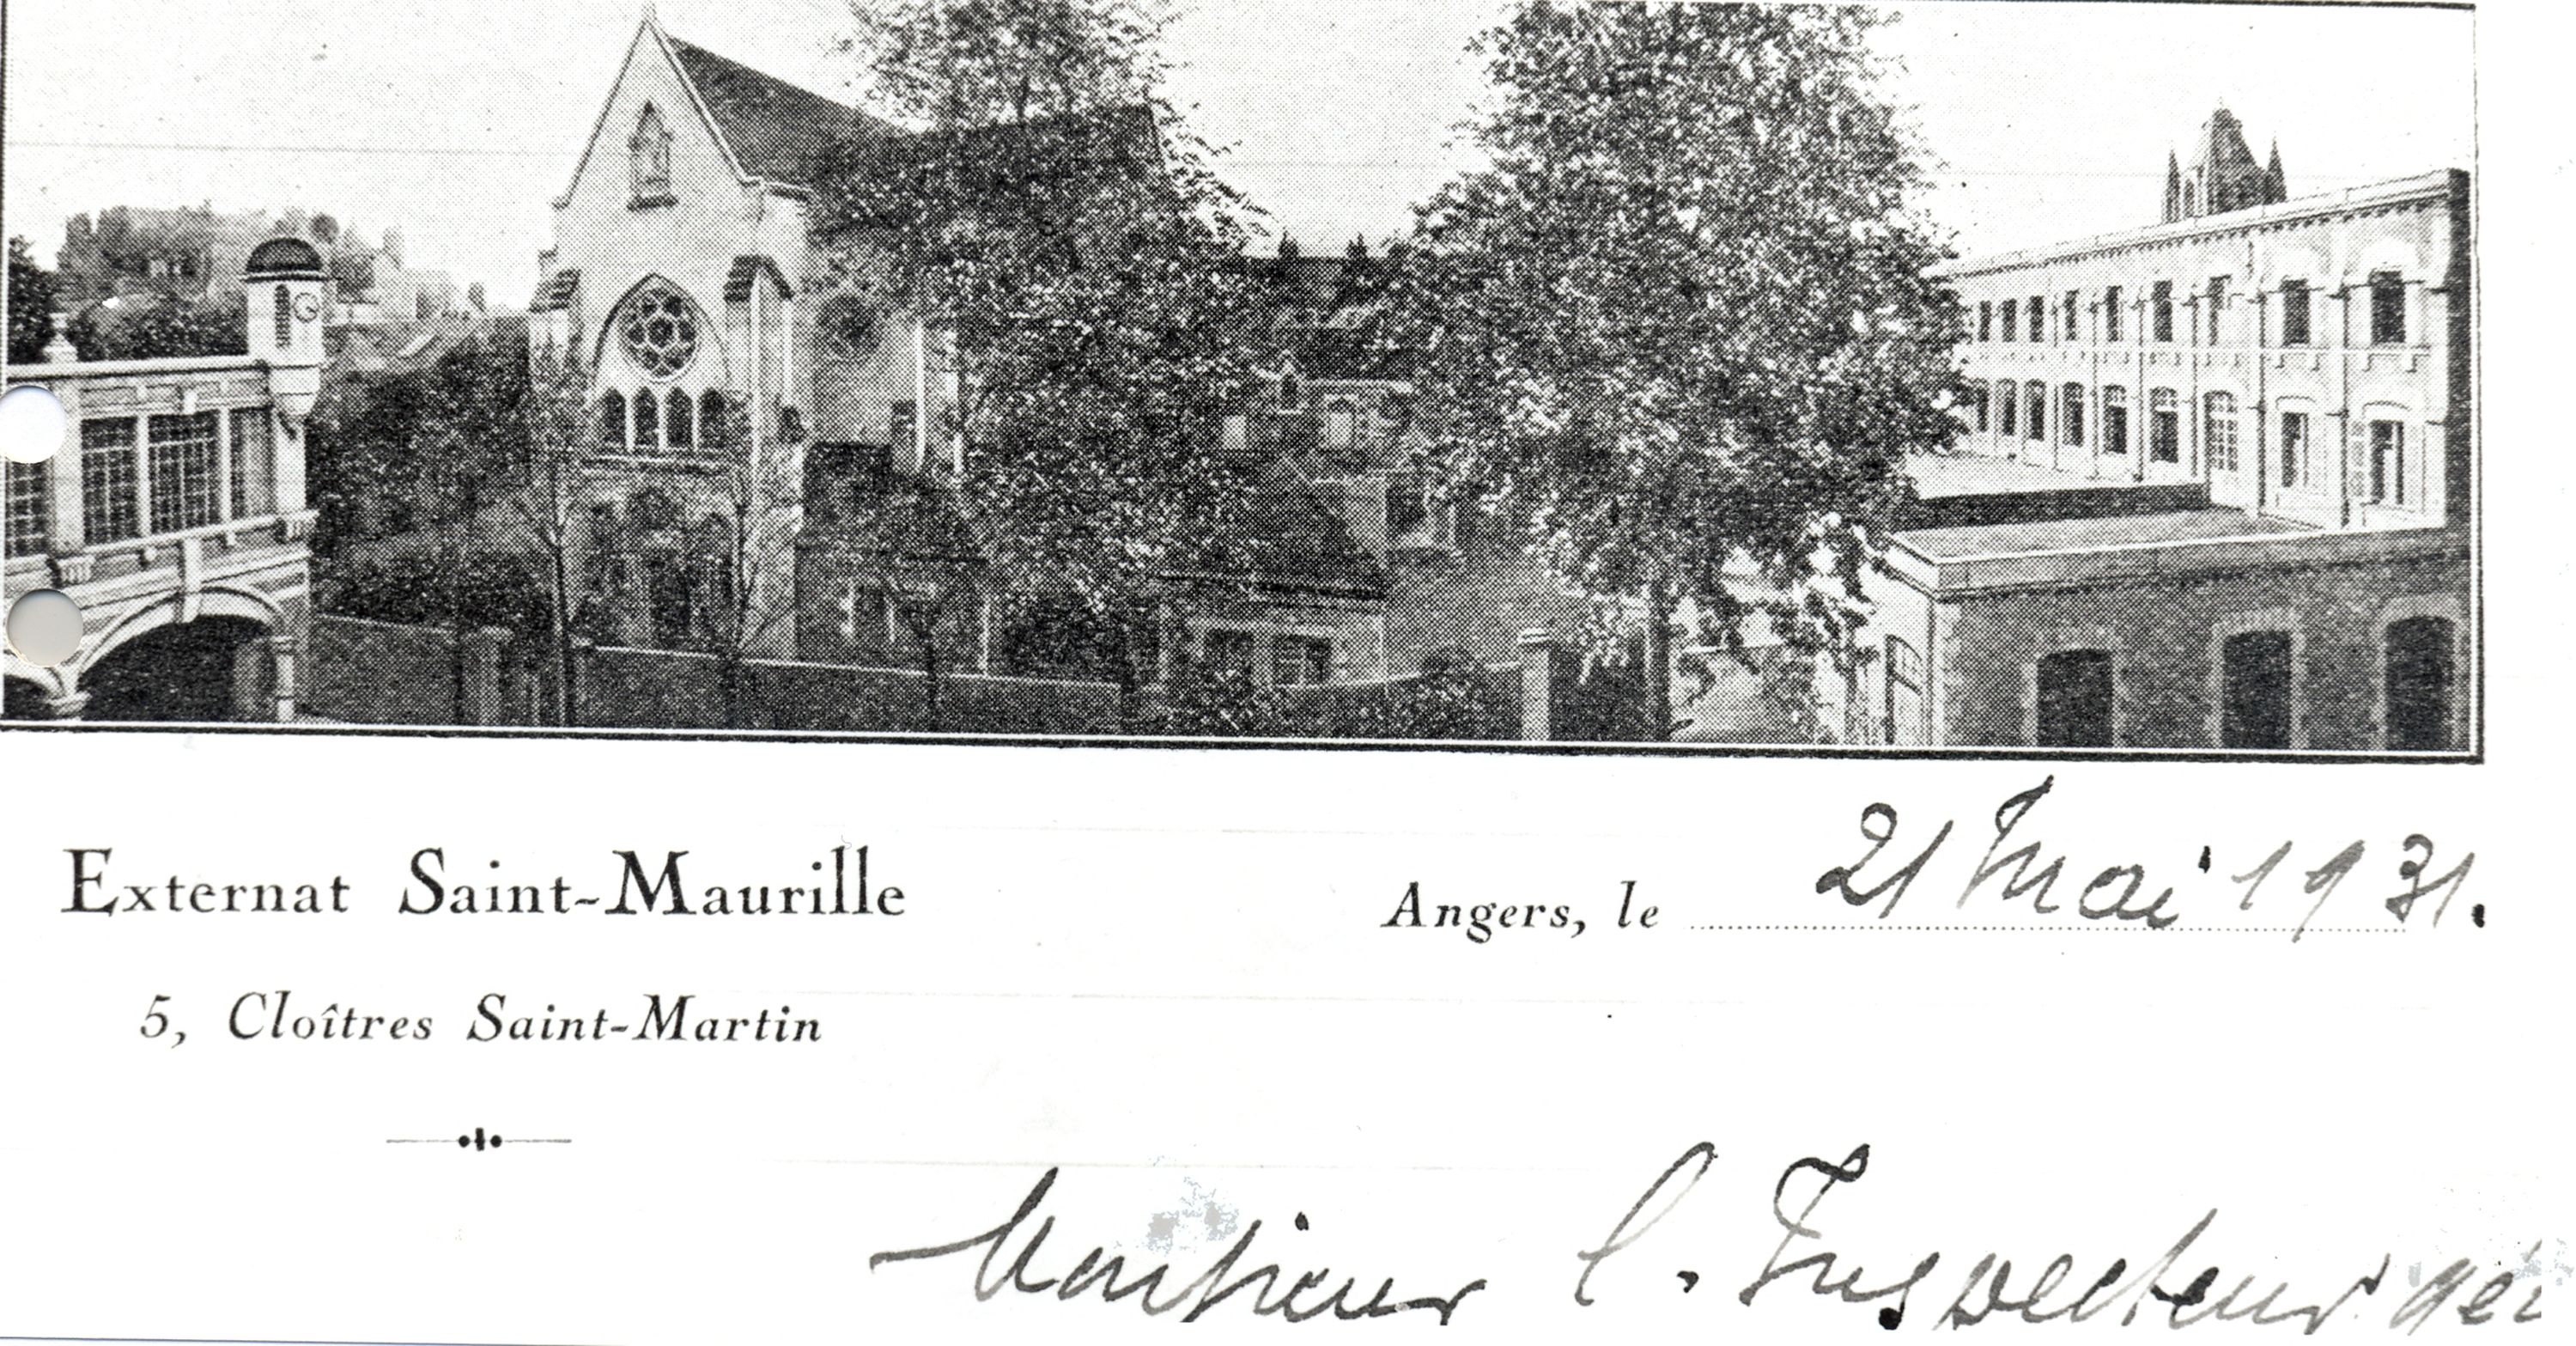 Externat Saint-Maurille
Angers, le 21 Mai 1931.
5, Cloîtres Saint-Martin
Monsieur l'Inspecteur